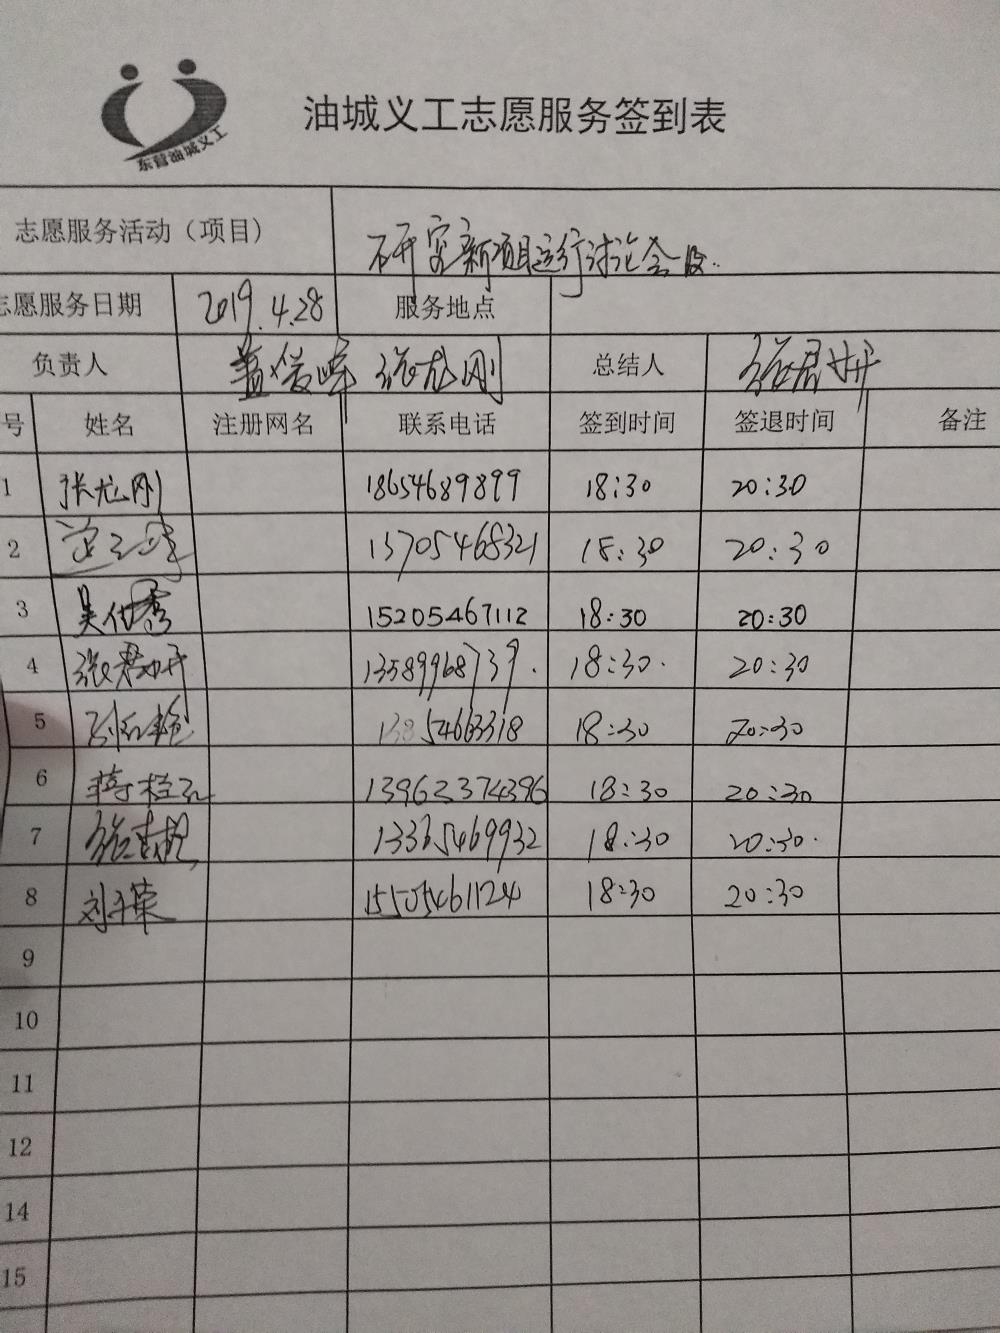 东营油城义工
油城义工志愿服务签到表
志愿服务活动（项目） 研究新项目运行讨论会议..
志愿服务日期 2019.4.28 服务地点
负责人 盖俊峰 张龙刚 总结人 张君妍
号 姓名 注册网名 联系电话 签到时间 签退时间 备注
1 张龙刚 18654689899 18:30 20:30
2 13705468321 18:30 20:30
3 吴代秀 15205467112 18:30 20:30
4 张君妍 13589968739. 18:30. 20:30
5 13854663318 18:30 20:30
6 13962374396 18:30 20:30
7 13365469932 18:30 20:30.
8 刘子荣 15505461124 18:30 20:30
9
10
11
12
14
15